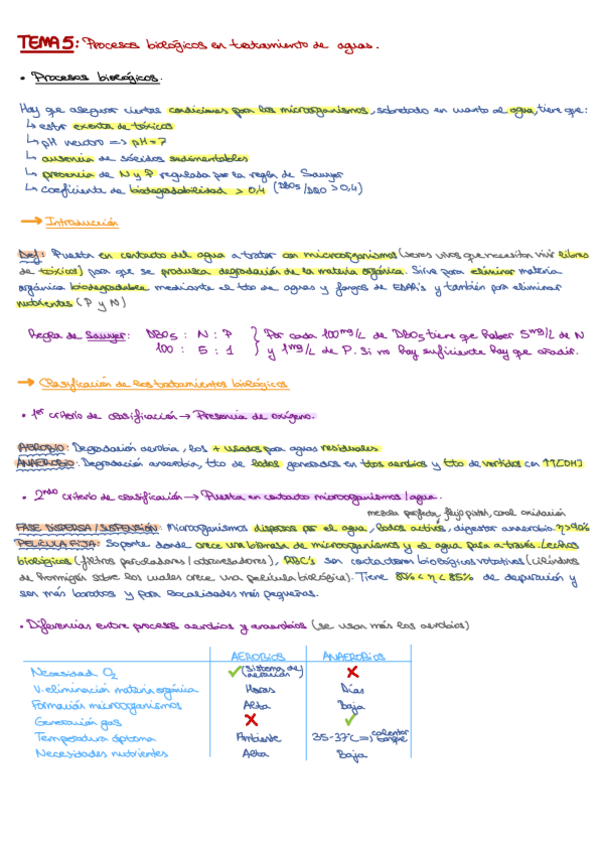 TEMA 5: Procesos biológicos en tratamiento de aguas.
• Procesos biológicos.
Hay que asegurar ciertas condiciones para los microorganismos, sobretodo en cuanto al agua, tiene que:
↳ estar exenta de tóxicos
↳ pH neutro => pH=7
↳ ausencia de sólidos sedimentables
↳ presencia de N y P regulada por la regla de Sawyer
↳ coeficiente de biodegradabilidad > 0,4 (DBO5/DBO > 0,4)
→ Introducción
Def: Puesta en contacto del agua a tratar con microorganismos (seres vivos que necesitan vivir libres
de tóxicos) para que se produzca degradación de la materia orgánica. Sirve para eliminar materia
orgánica biodegradable mediante el tto de aguas y fangos de EDAR's y también para eliminar
nutrientes (P y N)
Regla de Sawyer: DBO5 : N : P } Por cada 100mg/L de DBO5 tiene que haber 5mg/L de N
100 : 5 : 1 y 1mg/L de P. Si no hay suficiente hay que añadir.
→ Clasificación de los tratamientos biológicos
• 1er criterio de clasificación → Presencia de oxígeno.
AEROBIO: Degradación aerobia, los + usados para aguas residuales
ANAEROBIO: Degradación anaerobia, tto de lodos generados en ttos aerobios y tto de vertidos con ↑↑[DH]
• 2ndo criterio de clasificación → Puesta en contacto microorganismos/agua.
mezcla perfecta, flujo pistón, canal oxidación
FASE DISPERSA/SUSPENSIÓN: Microorganismos dispersos por el agua, lodos activos, digestor anaerobio. η>90%
PELÍCULA FIJA: Soporte donde crece una biomasa de microorganismos y el agua pasa a través. Lechos
biológicos (filtros percoladores/atravesadores), RBC's son contactores biológicos rotativos (cilindros
de hormigón sobre los cuales crece una película biológica). Tiene 80% < η < 85% de depuración y
son más baratos y para localidades más pequeñas.
• Diferencias entre procesos aerobios y anaerobios (se usan más los aerobios)
AEROBIOS ANAEROBIOS
Necesidad O2 ✓ (sistema de aereación) ✗
V. eliminación materia orgánica Horas Días
Formación microorganismos Alta Baja
Generación gas ✗ ✓
Temperatura óptima Ambiente 35-37°C => calentar tanque
Necesidades nutrientes Alta Baja